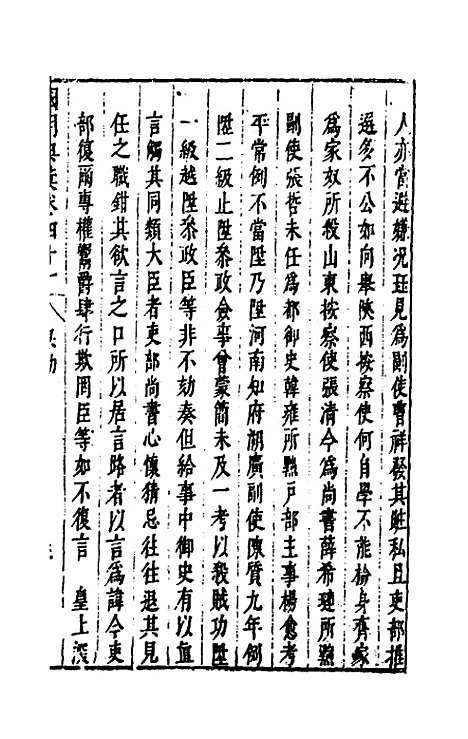 人亦當避嫌况珏見爲副使曹祥發其贓私且吏部推
選多不公如向舉陝西按察使何自學不能檢身齊家
爲家奴所殺山東按察使張清今爲尚書薛希璉所黜
副使張哲未任爲都御史韓雍所黜户部主事楊愈考
平常例不當陞乃陞河南知府湖廣副使陳質九年例
陞二級止陞叅政僉事曾蒙簡未及一考以殺賊功陞
一級越陞叅政臣等非不劾奏但給事中御史有以直
言觸其同類大臣者吏部尚書心懷猜忌往往退其見
任之職鉗其欲言之口所以居言路者以言爲諱今吏
部復爾專權鬻爵肆行欺罔臣等如不復言 皇上深
國朝典彙卷四十一